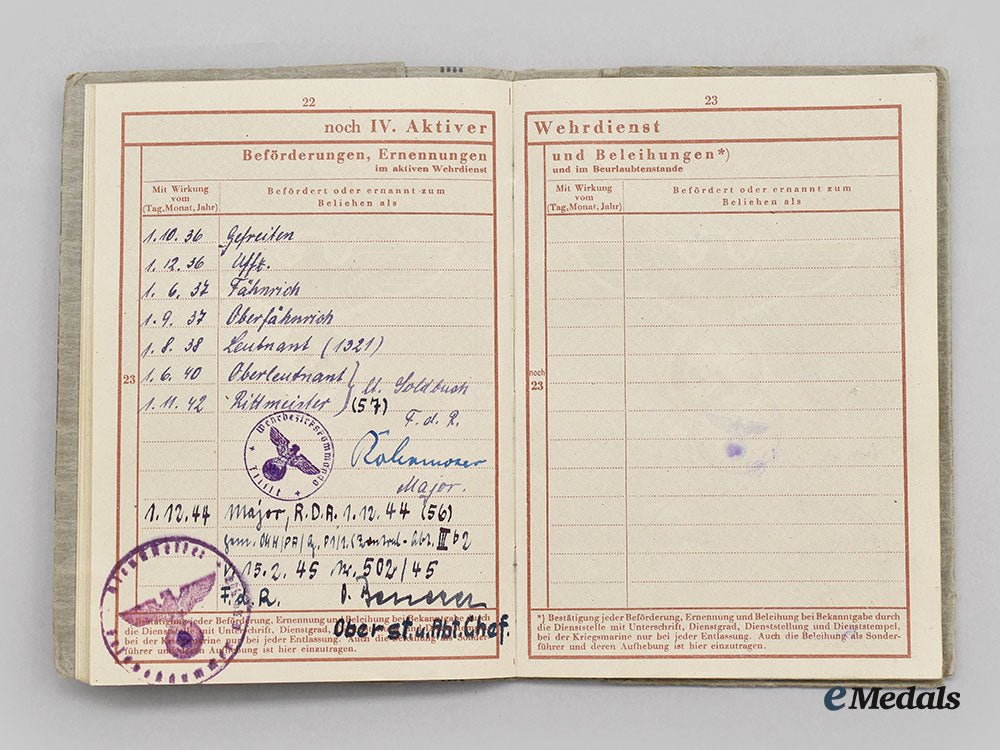 22
noch IV. Aktiver
Beförderungen, Ernennungen
im aktiven Wehrdienst
Mit Wirkung
vom
(Tag, Monat, Jahr)
Befördert oder ernannt zum
Beliehen als
1.10.36 Gefreiten
1.12.36 Uffz.
1.6.37 Fähnrich
1.9.37 Oberfähnrich
1.8.38 Leutnant (1321)
23
1.6.40 Oberleutnant
1.11.42 Rittmeister (57)
lt. Soldbuch
F.d.R.
Wehrbezirkskommando
Major.
1.12.44 Major, R.D.A. 1.12.44 (56)
v. 15.2.45 Nr. 502/45
F.d.R.
Oberst u. Abt. Chef.
Bestätigung jeder Beförderung, Ernennung und Beleihung bei Bekanntgabe durch
die Dienststelle mit Unterschrift, Dienstgrad,
bei der Kriegsmarine nur bei jeder Entlassung. Auch die
führer und deren Aufhebung ist hier einzutragen.
23
Wehrdienst
und Beleihungen*)
und im Beurlaubtenstande
Mit Wirkung
vom
(Tag, Monat, Jahr)
Befördert oder ernannt zum
Beliehen als
noch
23
*) Bestätigung jeder Beförderung, Ernennung und Beleihung bei Bekanntgabe durch
die Dienststelle mit Unterschrift, Dienstgrad, Dienststellung und Dienststempel,
bei der Kriegsmarine nur bei jeder Entlassung. Auch die Beleihung als Sonder-
führer und deren Aufhebung ist hier einzutragen.
eMedals